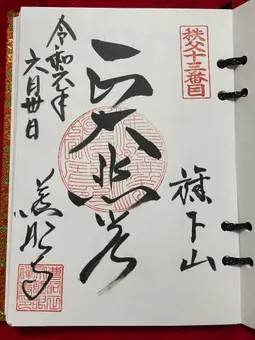 秩父十三番目
旗下山
正大悲
令和六年
六月卅日
慈眼寺